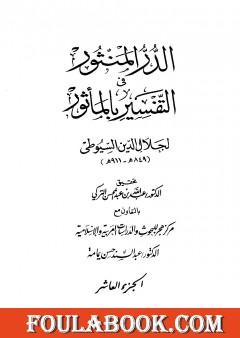 الدر المنثور
في
التفسير بالمأثور
لجلال الدين السيوطي
(٨٤٩هـ - ٩١١هـ)
تحقيق
الدكتور عبد الله بن عبد المحسن التركي
بالتعاون مع
مركز هجر للبحوث والدراسات العربية والإسلامية
الدكتور عبد السند حسن يمامة
الجزء العاشر
FOULABOOK.COM